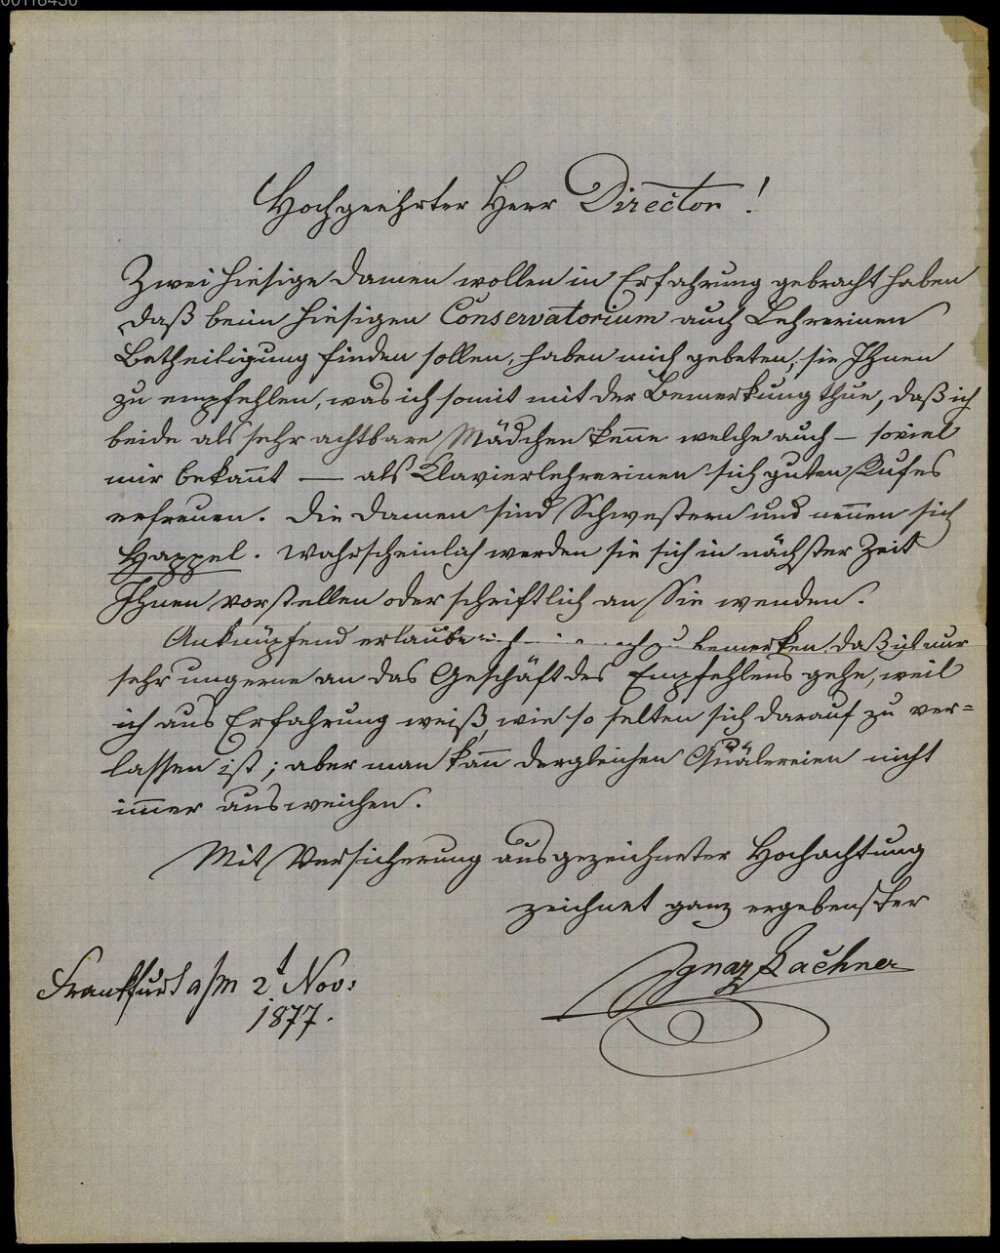 00118450
Hochgeehrter Herr Director!
Zwei hiesige Damen wollen in Erfahrung gebracht haben
daß beim hiesigen Conservatorium auch Lehrerinen
Betheiligung finden sollen, haben mich gebeten, sie Ihnen
zu empfehlen, was ich somit mit der Bemerkung thue, daß ich
beide als sehr achtbare Mädchen kenne welche auch – soviel
mir bekannt — als Klavierlehrerinen sich guten Rufes
erfreuen. Die Damen sind Schwestern und nennen sich
Happel. Wahrscheinlich werden sie sich in nächster Zeit
Ihnen vorstellen oder schriftlich an Sie wenden.
Anknüpfend erlaube zu bemerken, daß ich nur
sehr ungerne an das Geschäft des Empfehlens gehe, weil
ich aus Erfahrung weiß, wie so selten sich darauf zu ver=
lassen ist; aber man kann dergleichen Quälereien nicht
immer ausweichen.
Mit Versicherung ausgezeichneter Hochachtung
zeichnet ganz ergebenster
Ignaz Lachner
Frankfurt a/m 2t Nov:
1877.